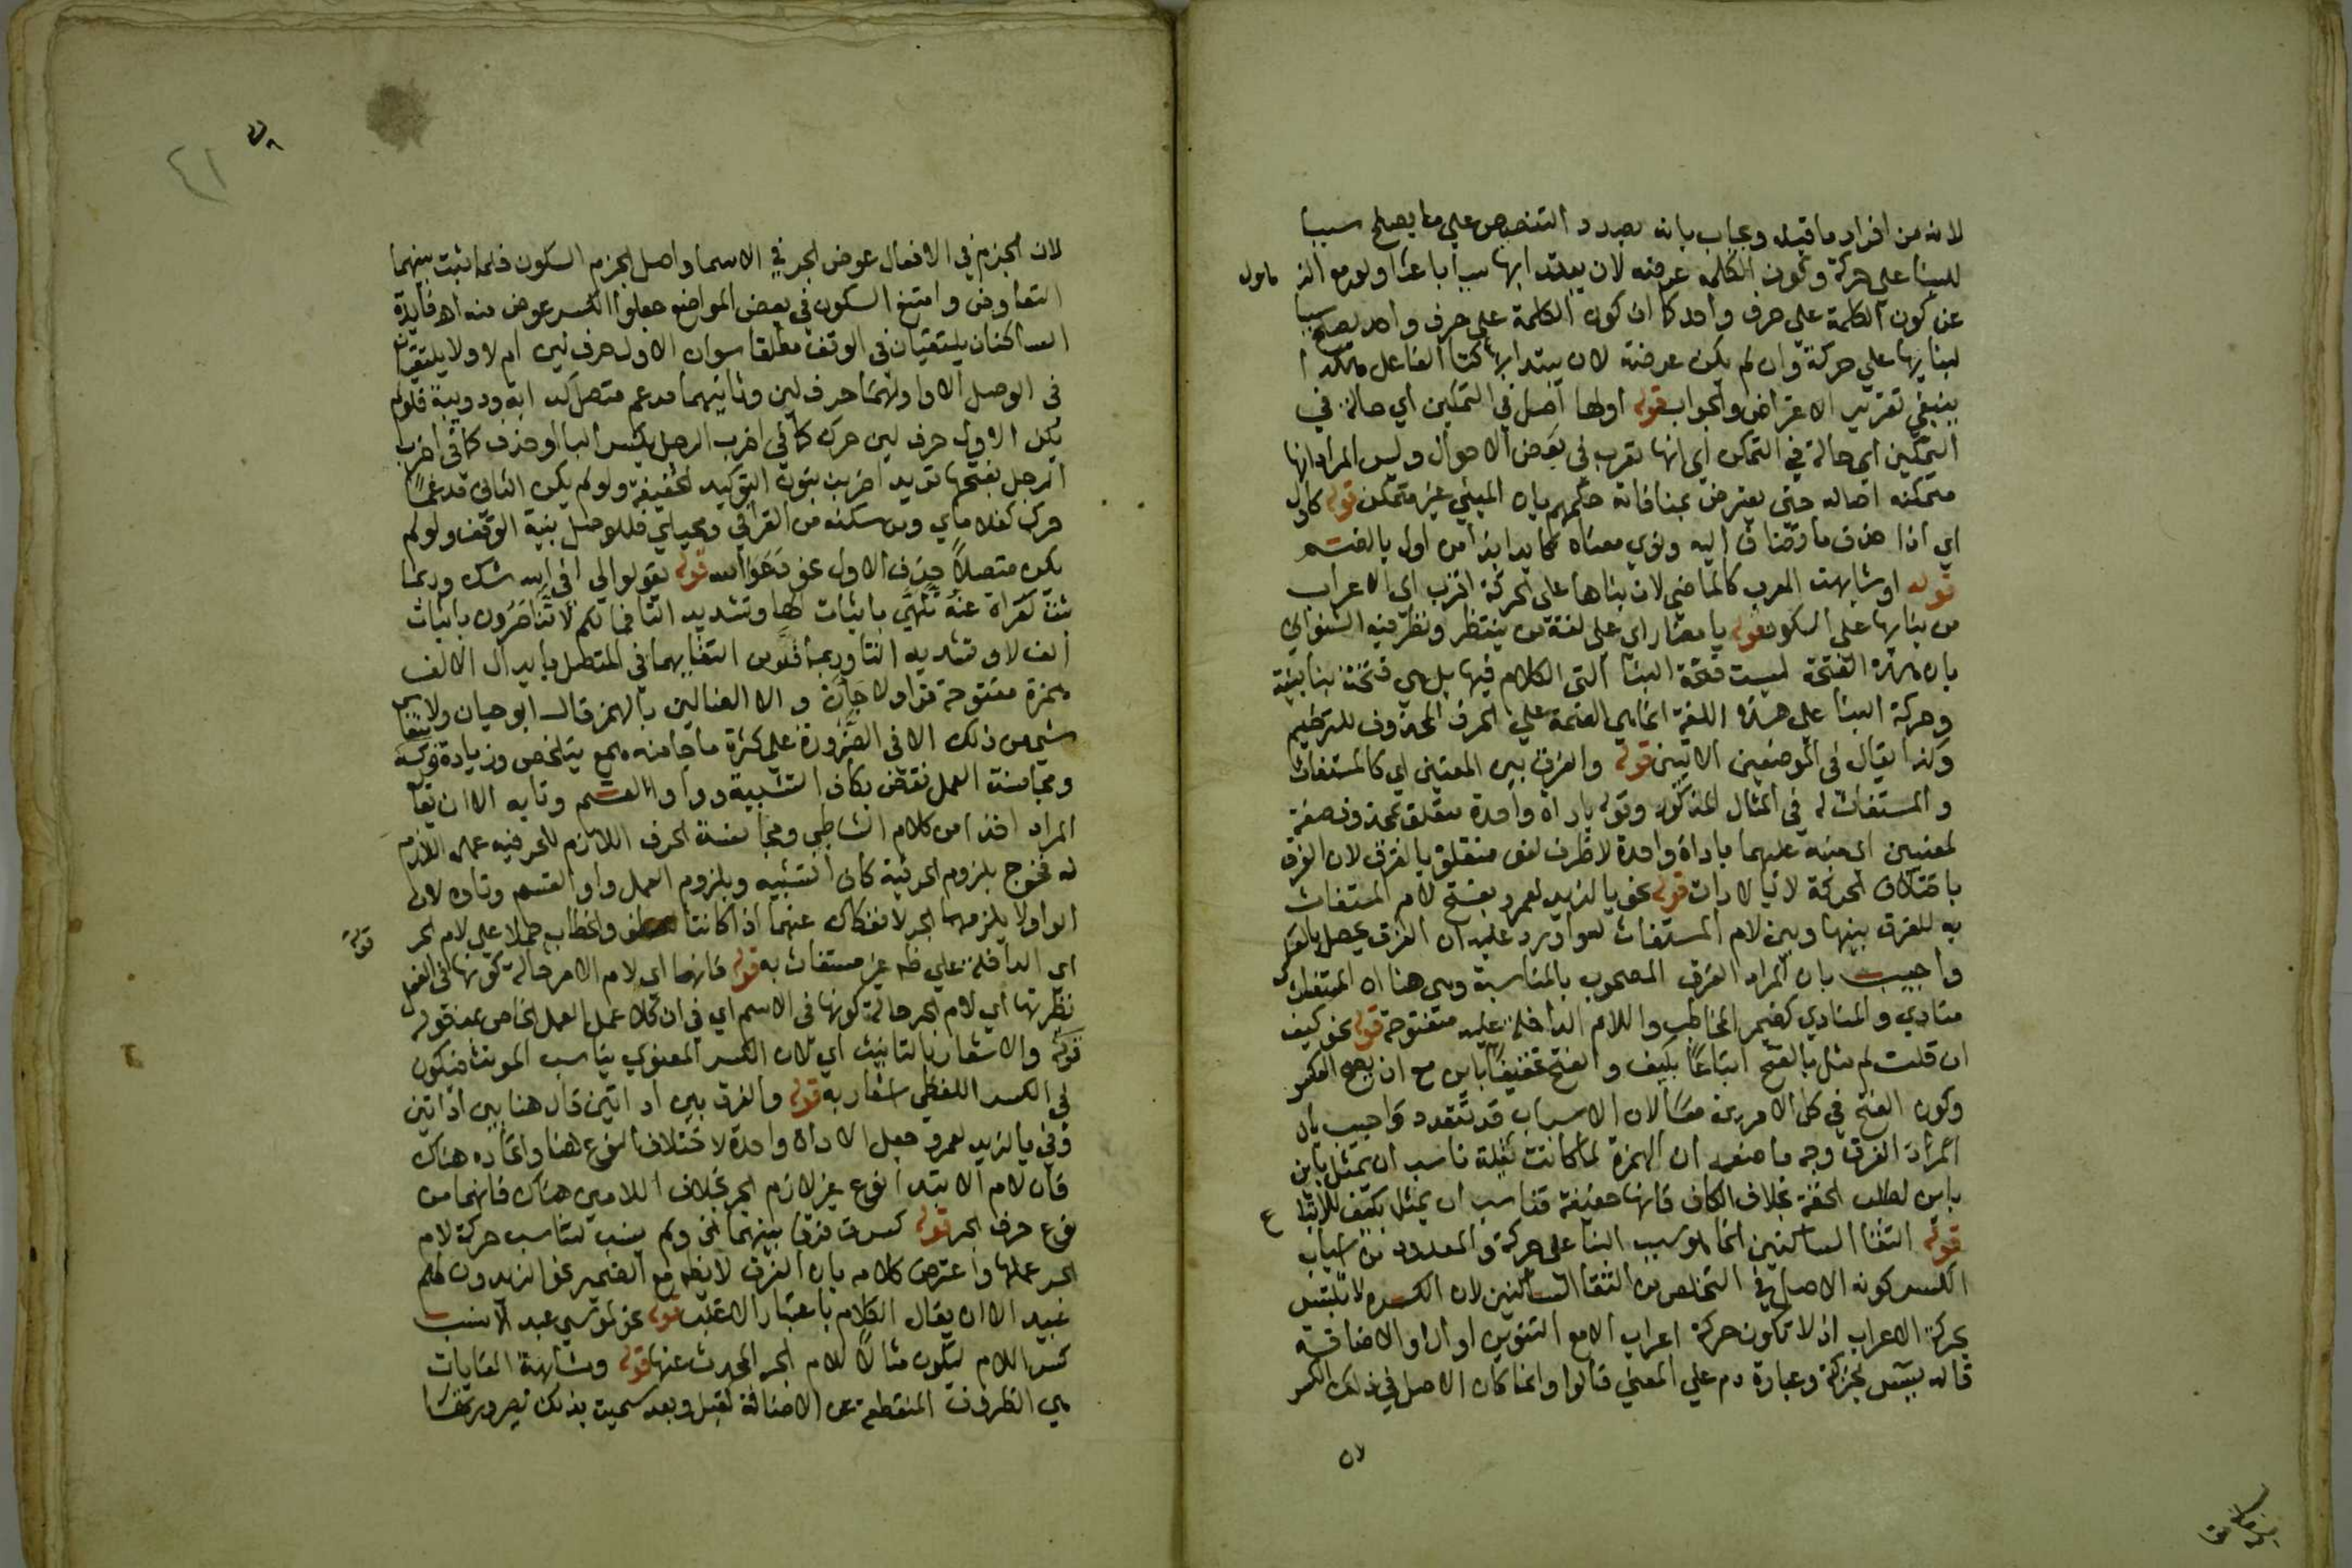 لانه من افراد ما قبله ويجاب بانه بصدد التنصيص على ما يصلح سببا
للبنا على حركة وكون الكلمة عرضة لان يبتدا بها سببا باعثا ولو مع
عن كون الكلمة على حرف واحد كما ان كون الكلمة على حرف واحد يصلح سببا
لبنايها على حركة وان لم يكن عرضة لان يبتدا بها كتا الفاعل هكذا
ينبغي تقرير الاعتراض والجواب قوله اولها اصل في التمكين اي حالة في
التمكين اي حالة في التمكن اي انها تعرب في بعض الاحوال وليس المراد انها
متمكنة اصالة حتى يعترض بمنافاته حكمهم بان المبني غير متمكن قوله كاول
اي اذا حذف ما تضاف اليه ونوي معناه كابدا بذا من اول بالضم
قوله او شابهت المعرب كالماضي لان بناها على الحركة اقرب الى الاعراب
من بنايها على السكون قوله يا مضار اي على لغة من ينتظر ونظر فيه الشنواني
بان هذه الفتحة ليست فتحة البنا التي الكلام فيها بل هي فتحة بنا بنية
وحركة البنا على هذه اللغة انما هي الضمة على الحرف المحذوف للترخيم
وكذا يقال في الموضعين الاتيين قوله والفرق بين المعنيين اي كالمستغاث
والمستغاث له في المثال المذكور وقوله باداة واحدة متعلق بمحذوف صفة
لمعنيين اي منبه عليهما باداة واحدة لا ظرف لغو متعلق بالفرق لان الفرق
باختلاف الحركة لا بالادات قوله نحو يا لزيد لعمرو بفتح لام المستغاث
به للفرق بينها وبين لام المستغاث له واورد عليه ان الفرق يحصل بالعكس
واجيب بان المراد الفرق المصحوب بالمناسبة وهي هنا ان المستغاث
منادى والمنادى كضمير المخاطب واللام الداخلة عليه مفتوحة قوله نحو كيف
ان قلت لم مثل بالفتح اتباعا بكيف والفتح تخفيفا باين مع ان يصح العكس
وكون الفتح في كل الامرين معا لان الاسباب قد تتعدد واجيب بان
المراد الفرق وجه ما صنعه ان الهمزة لما كانت ثقيلة ناسب ان يمثل باين
باين لطلب الخفة بخلاف الكاف فانها خفيفة فناسب ان يمثل بكيف للاتباع
قوله التقا الساكنين انما هو سبب البنا على حركة والمعدود من اسباب
الكسر كونه الاصل في التخلص من التقا الساكنين لان الكسرة لا تلتبس
بحركة الاعراب اذ لا تكون حركة اعراب الا مع التنوين او ال او الاضافة
قاله يس بحركة وعبارة دم على المغني قالوا وانما كان الاصل في ذلك الكسر
لان
٤١
لان الجزم في الافعال عوض الجر في الاسما واصل الجزم السكون فلما ثبت بينهما
التعاوض وامتنع السكون في بعض المواضع جعلوا الكسر عوض منه اه فايدة
الساكنان يلتقيان في الوقف مطلقا سوا كان الاول حرف لين ام لا ولا يلتقيان
في الوصل الا واولهما حرف لين وثانيهما مدغم متصل كدابة ودويبة فلو لم
يكن الاول حرف لين حرك كما في اضرب الرجل بكسر البا او حذف كما في اضرب
الرجل بفتحها تريد اضربن بنون التوكيد الخفيفة ولو لم يكن الثاني مدغما
حرك كغلاماي ومن سكنه من القرا في محياي فللوصل بنية الوقف ولو لم
يكن متصلا حذف الاول نحو دعوا الله قوله يقولوا لي افي الله شك وربما
ثبت كقراة عنه تلهي باثبات لها وتشديد التا فما لكم لا تناصرون باثبات
الف لا وتشديد التا وربما فر من التقايهما في المتصل بابدال الالف
همزة مفتوحة نحو ولا جأن ولا الضالين بالهمز قال ابو حيان ولا ينقاس
شي من ذلك الا في الضرورة على كثرة ما جا منه همع بتلخيص وزيادة قوله
ومجانسة العمل نقض بكاف التشبيه وواو القسم وتايه الا ان يقال
المراد اخذا من كلام الشاطبي ومجانسة الحرف اللازم للحرفية عمله اللازم
له فخرج بلزوم الحرفية كاف التشبيه وبلزوم العمل واو القسم وتاوه لان
الواو لا يلزمها الجر لانفكاك عنهما اذا كانتا لعطف وخطاب حملا على لام الجر
اي الداخلة على ظاهر غير مستغاث به قوله فانها اي لام الامر حالة كونها في الفعل
نظيرتها اي لام الجر حالة كونها في الاسم اي في ان كلا عمل العمل الخاص بمدخوله
قوله والاشعار بالتانيث اي لان الكسر المعنوي يناسب المونث فيكون
في الكسر اللفظي اشعار به قوله والفرق بين اداتين قال هنا بين اداتين
وفي يا لزيد لعمرو جعل الاداة واحدة لاختلاف النوع هنا واتحاده هناك
فان لام الابتدا نوع غير لازم الجر بخلاف اللامين هناك فانهما من
نوع حرف الجر قوله كسرت فرقا بينهما الخ ولم ينسب لتناسب حركة لام
الجر عملها واعترض كلامه بان الفرق لا يظهر مع الضمير نحو لزيدون لهم
عبيد الا ان يقال الكلام باعتبار الاغلب قوله نحو لموسى عبد الانسب
كسر اللام ليكون مثالا للام الجر المحدث عنها قوله ومشابهة الغايات
هي الظروف المنقطعة عن الاضافة كقبل وبعد سميت بذلك لصيرورتها